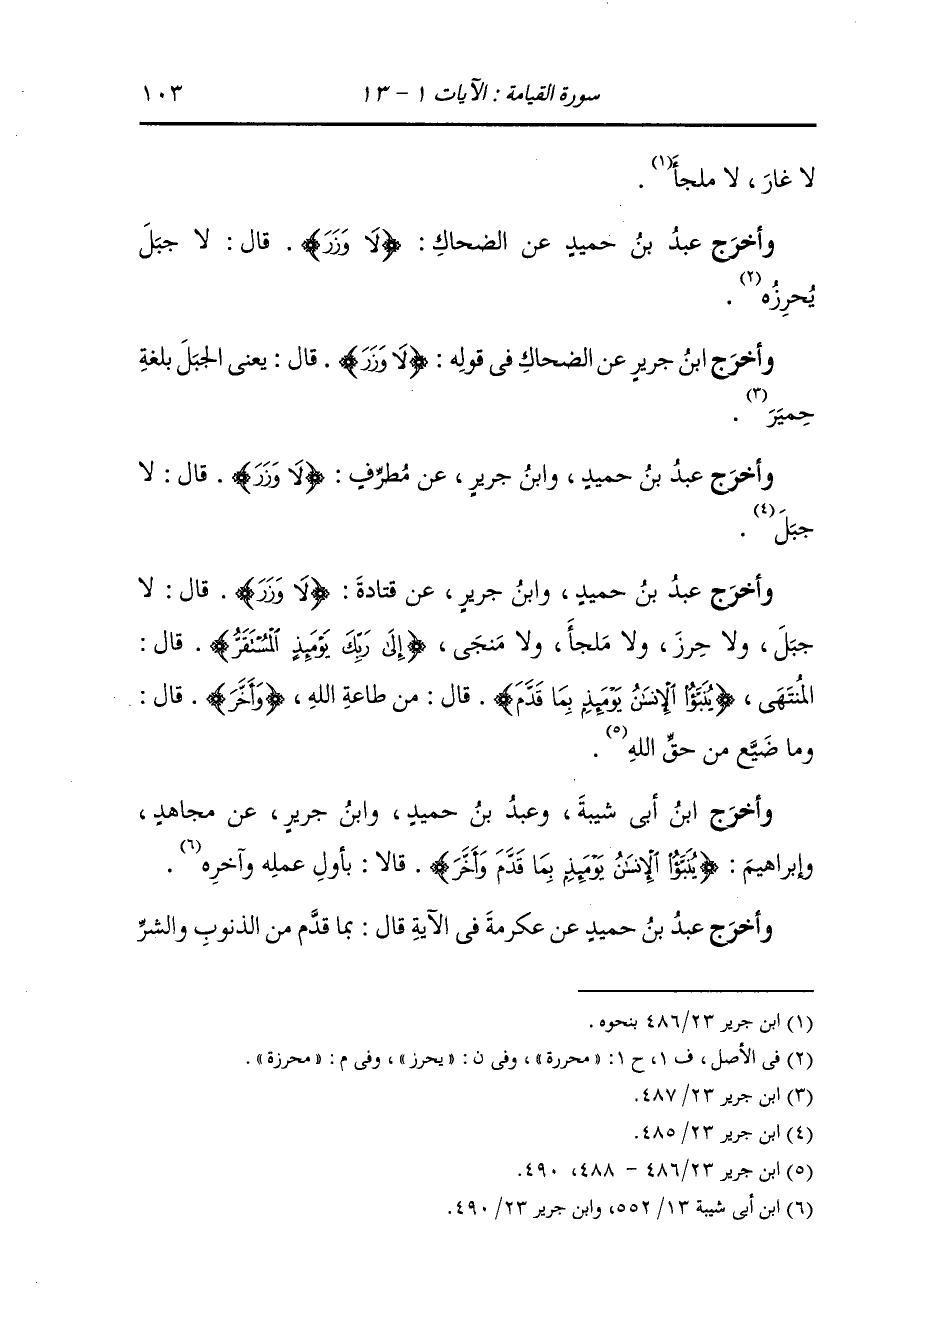 سورة القيامة : الآيات ١ - ١٣ ١٠٣
لا غارَ ، لا ملجأَ(١) .
وأخرَج عبدُ بنُ حميدٍ عن الضحاكِ : ﴿لَا وَزَرَ﴾ . قال : لا جبَلَ
يُحرِزُه(٢) .
وأخرَج ابنُ جريرٍ عن الضحاكِ فى قولِه : ﴿لَا وَزَرَ﴾ . قال : يعنى الجبَلَ بلغةِ
حِميَرَ(٣) .
وأخرَج عبدُ بنُ حميدٍ ، وابنُ جريرٍ ، عن مُطرِّفٍ : ﴿لَا وَزَرَ﴾ . قال : لا
جبَلَ(٤) .
وأخرَج عبدُ بنُ حميدٍ ، وابنُ جريرٍ ، عن قتادةَ : ﴿لَا وَزَرَ﴾ . قال : لا
جبَلَ ، ولا حِرزَ ، ولا مَلجأَ ، ولا مَنجَى ، ﴿إِلَىٰ رَبِّكَ يَوْمَئِذٍ ٱلْمُسْتَقَرُّ﴾ . قال :
المُنتَهَى ، ﴿يُنَبَّؤُا۟ ٱلْإِنسَٰنُ يَوْمَئِذٍۭ بِمَا قَدَّمَ﴾ . قال : من طاعةِ اللهِ ، ﴿وَأَخَّرَ﴾ . قال :
وما ضَيَّع من حقِّ اللهِ(٥) .
وأخرَج ابنُ أبى شيبةَ ، وعبدُ بنُ حميدٍ ، وابنُ جريرٍ ، عن مجاهدٍ ،
وإبراهيمَ : ﴿يُنَبَّؤُا۟ ٱلْإِنسَٰنُ يَوْمَئِذٍۭ بِمَا قَدَّمَ وَأَخَّرَ﴾ . قالا : بأولِ عملِه وآخرِه(٦) .
وأخرَج عبدُ بنُ حميدٍ عن عكرمةَ فى الآيةِ قال : بما قدَّم من الذنوبِ والشرِّ
(١) ابن جرير ٤٨٦/٢٣ بنحوه .
(٢) فى الأصل ، ف ١، ح ١: « محررة » ، وفى ن : « يحرز » ، وفى م : « محرزة » .
(٣) ابن جرير ٢٣/ ٤٨٧.
(٤) ابن جرير ٢٣/ ٤٨٥.
(٥) ابن جرير ٤٨٦/٢٣ - ٤٨٨، ٤٩٠.
(٦) ابن أبى شيبة ١٣/ ٥٥٢، وابن جرير ٢٣/ ٤٩٠.